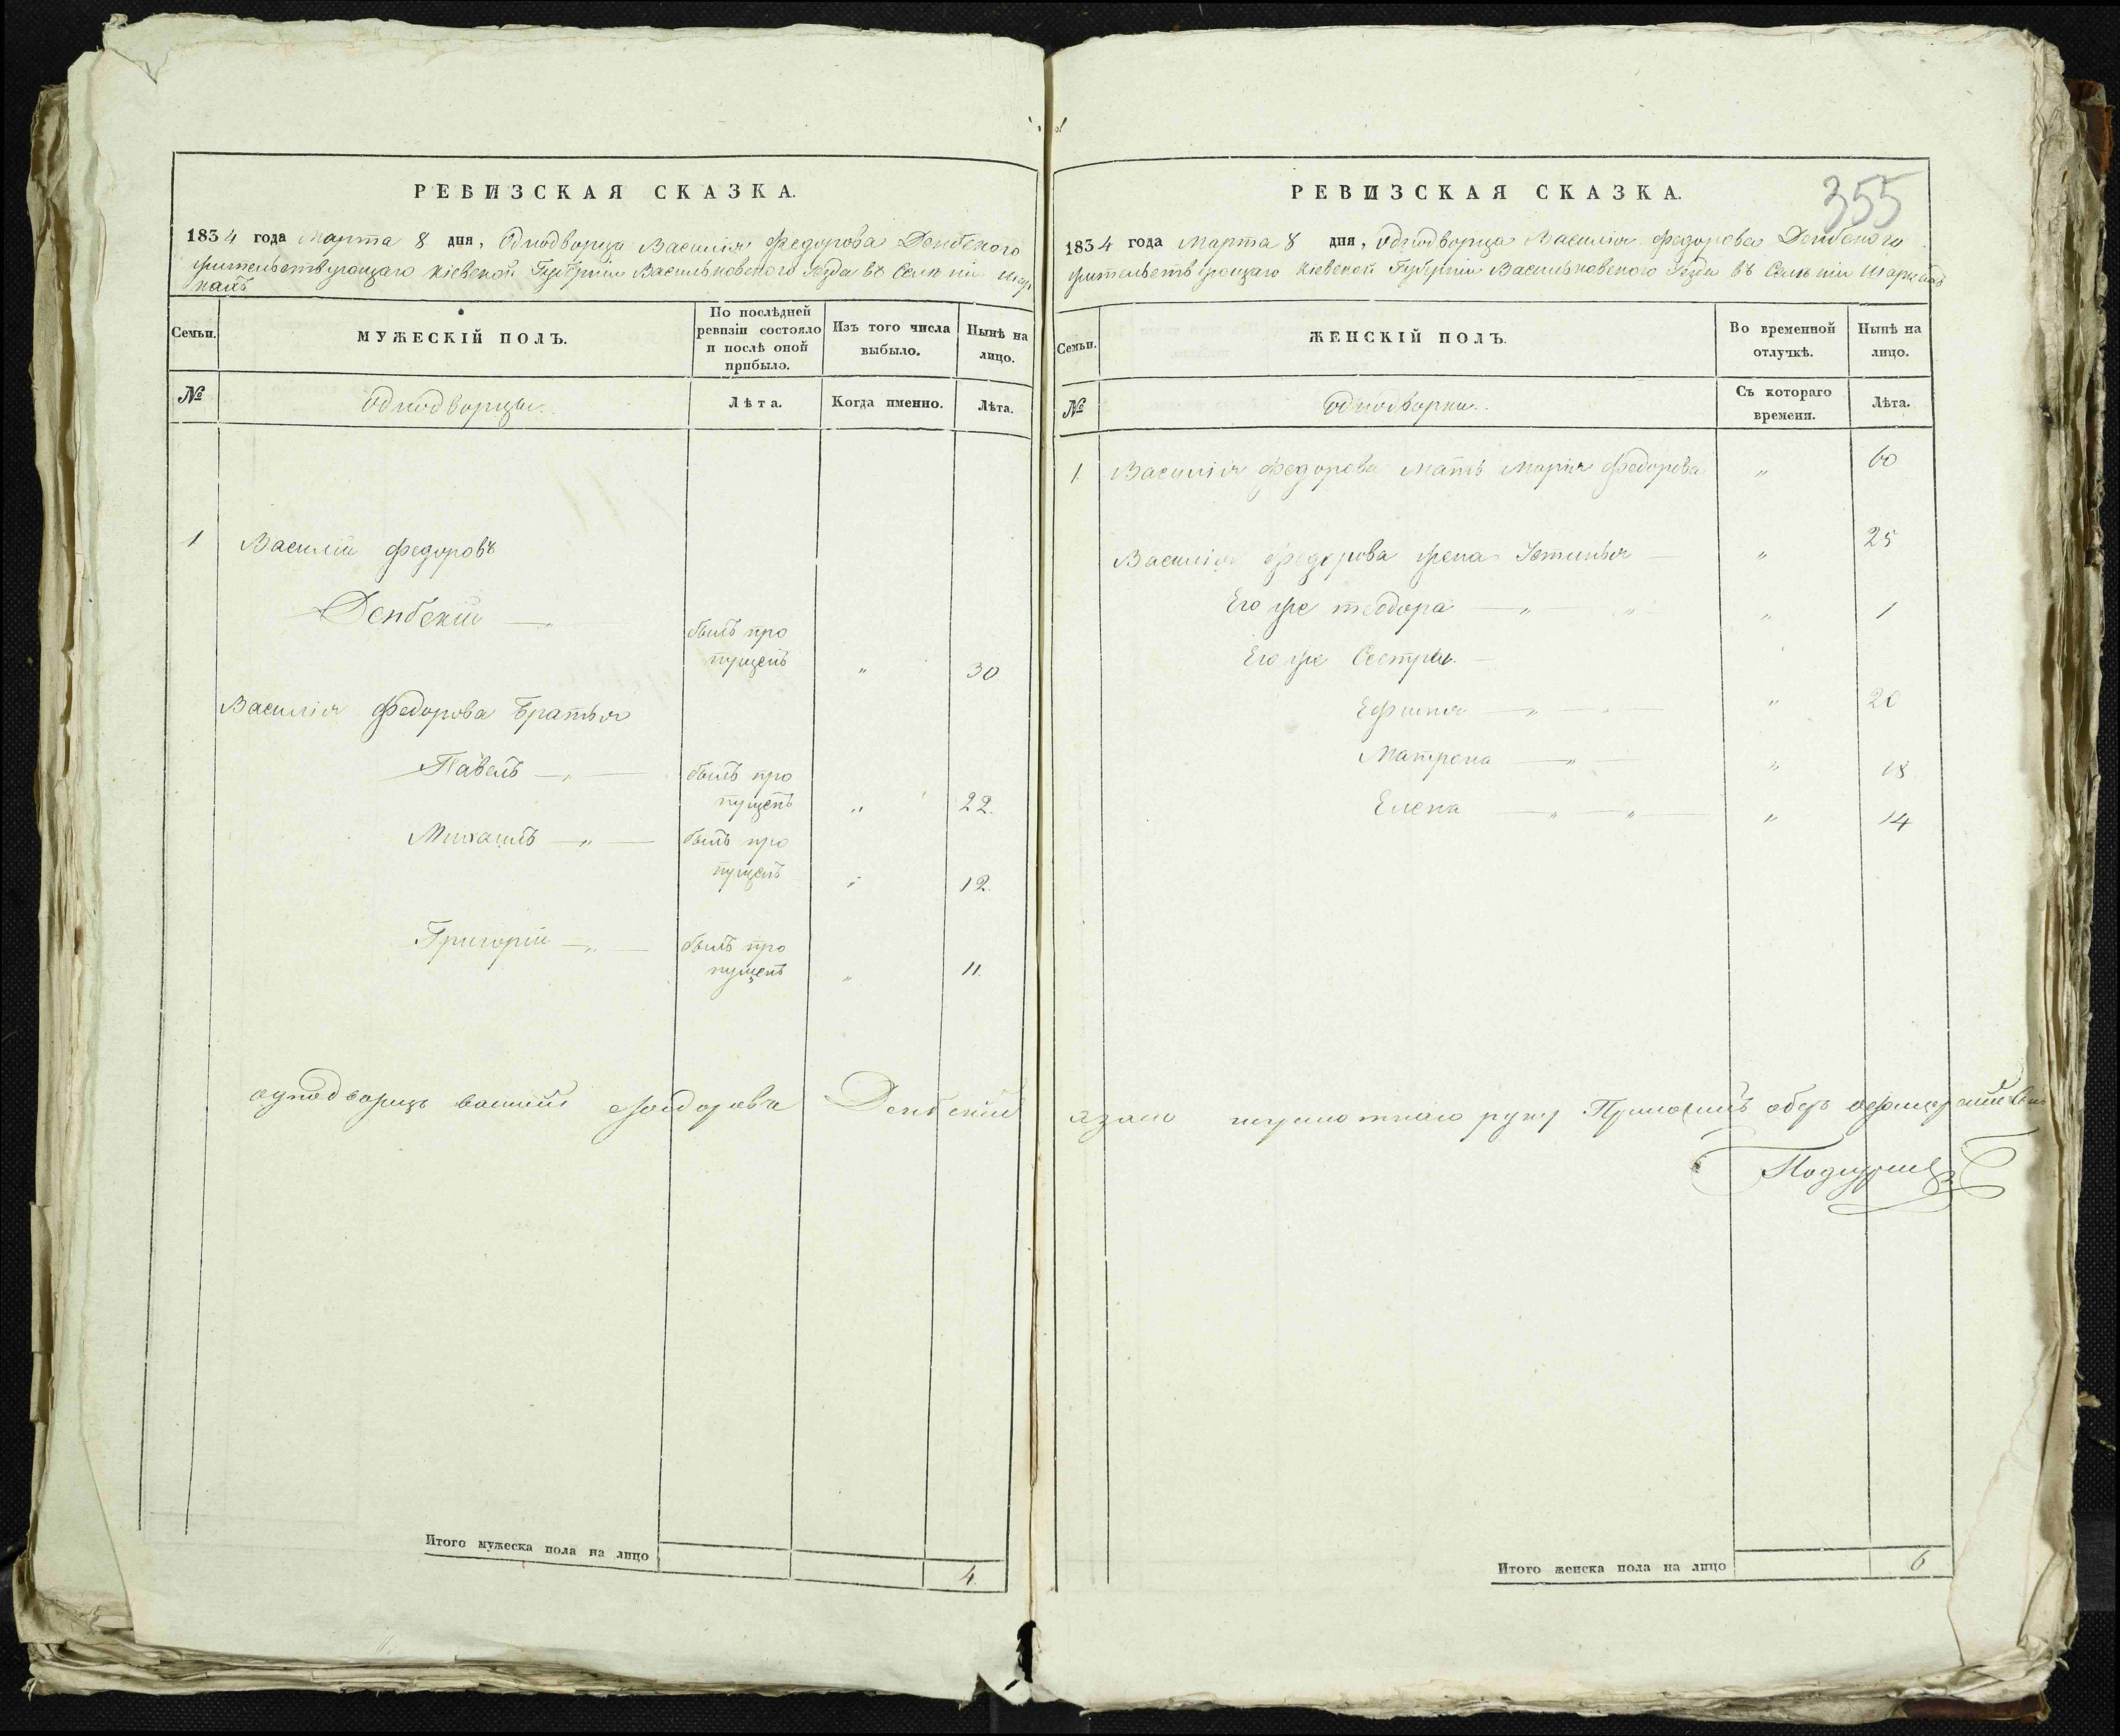 РЕВИЗСКАЯ СКАЗКА.
1834 года Марта 8 дня, Однодворца Василія Федорова Денбского
жительствующаго Кіевской Губерніи Васильковского Уезда въ Селеніи
Семьи.
МУЖЕСКІЙ ПОЛЪ.
По послѣдней ревизіи состояло и послѣ оной прибыло.
Изъ того числа выбыло.
Нынѣ на лицо.
№
Однодворцы.
Лѣта.
Когда именно.
Лѣта.
1 Василій Федоровъ
Денбскій — „
былъ про
пущенъ „ 30
Василія Федорова Братья
Павелъ — „ — былъ про
пущенъ „ 22.
Михаилъ — „ — былъ про
пущенъ „ 12.
Григорій — „ — былъ про
пущенъ „ 11.
однодворецъ Денбскій
Итого мужеска пола на лицо 4.
355
РЕВИЗСКАЯ СКАЗКА.
1834 года Марта 8 дня, Однодворца Василія Федорова Денбского
жительствующаго Кіевской Губерніи Васильковского Уезда въ Селеніи
Семьи.
ЖЕНСКІЙ ПОЛЪ.
Во временной отлучкѣ.
Нынѣ на лицо.
№
Однодворки.
Съ котораго времени.
Лѣта.
1. Василія Федорова Мать Марія Федорова „ 60
Василія Федорова жена Устинья — „ 25
Его же Теодора — „ — „ „ 1
Его же Сестры. —
Ефимия — „ — „ — „ 20
Матрена — „ — „ 18
Елена — „ — „ — „ 14
руку Приложилъ
Итого женска пола на лицо 6